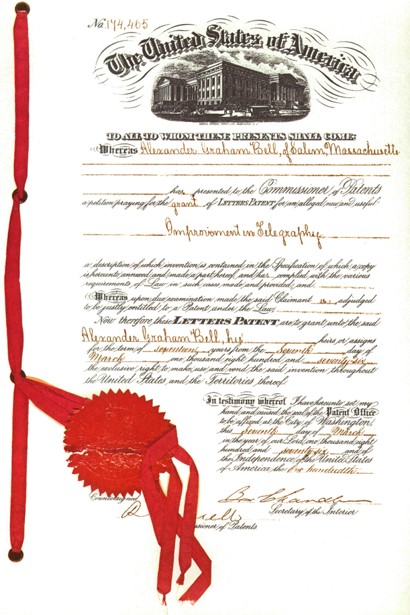 No. 174,465
The United States of America
TO ALL TO WHOM THESE PRESENTS SHALL COME:
Whereas Alexander Graham Bell, of Salem, Massachusetts
has presented to the Commissioner of Patents
a petition praying for the grant of LETTERS PATENT for an alleged new and useful
Improvement in Telegraphy,
a description of which invention is contained in the Specification of which a copy
is hereunto annexed and made a part hereof, and has complied with the various
requirements of Law in such cases made and provided, and
Whereas upon due examination made the said Claimant is adjudged
to be justly entitled to a Patent under the Law.
Now therefore these LETTERS PATENT are to grant unto the said
Alexander Graham Bell, his heirs or assigns
for the term of seventeen years from the seventh day of
March one thousand eight hundred and seventy-six
the exclusive right to make, use and vend the said invention throughout
the United States and the Territories thereof.
In testimony whereof I have hereunto set my
hand and caused the seal of the Patent Office
to be affixed at the City of Washington
this seventh day of March
in the year of our Lord one thousand eight
hundred and seventy-six and of
the Independence of the United States
of America the one hundredth.
Countersigned
Secretary of the Interior
of Patents